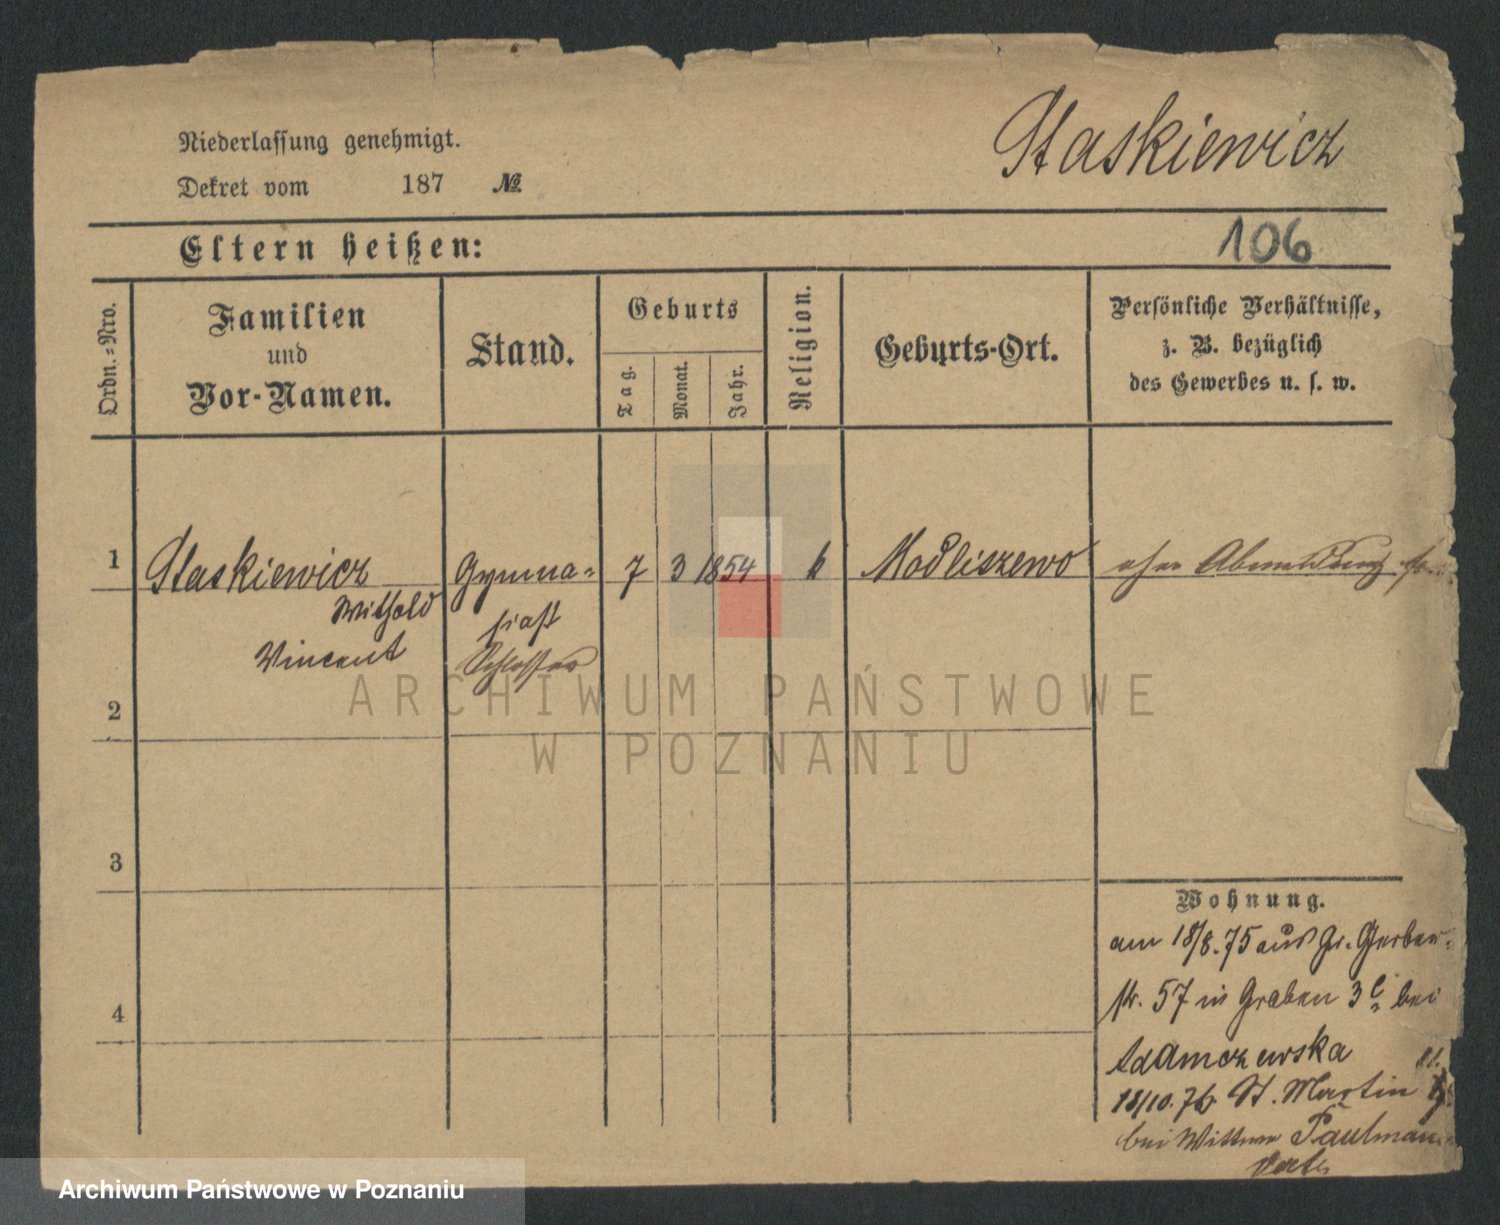 Niederlassung genehmigt.
Dekret vom 187 №
Staskiewicz
Eltern heißen:
106
Ordn.=Nro.
Familien
und
Vor-Namen.
Stand.
Geburts
Tag.
Monat.
Jahr.
Religion.
Geburts-Ort.
Persönliche Verhältnisse,
z. B. bezüglich
des Gewerbes u. s. w.
1 Staskiewicz Gymna= 7 3 1854 k Modliszewo Abmeldung
Withold siast
Vincent Schlosser
2
3
4
Wohnung.
am 18/8.75 aus Gr. Gerber=
str. 57 in Graben 3 bei
Adamczewska
18/10.76 St. Martin
bei Wittwe Paulmann
ARCHIWUM PAŃSTWOWE
W POZNANIU
Archiwum Państwowe w Poznaniu